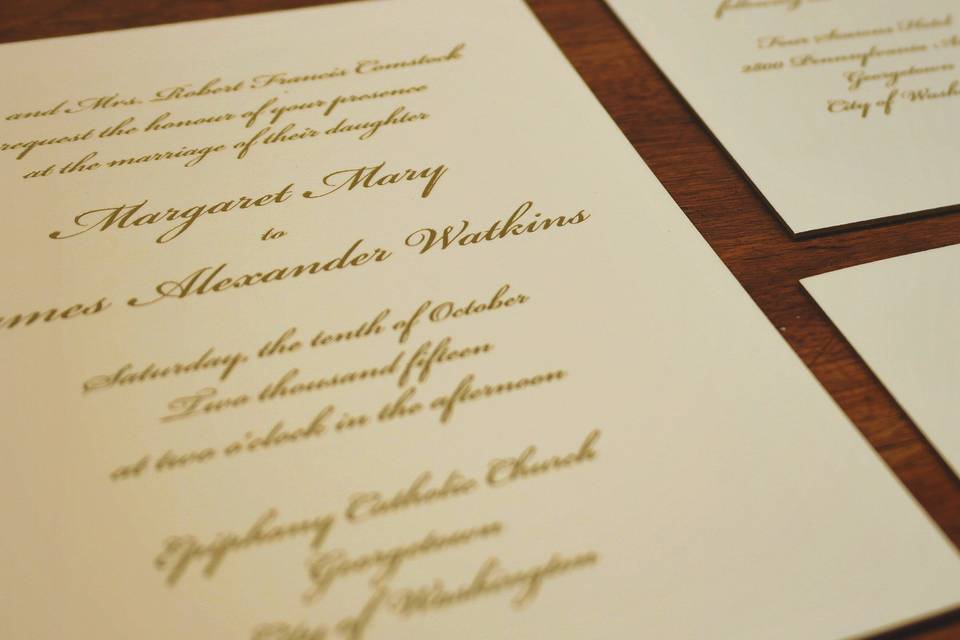 and Mrs. Robert Francis Comstock
request the honour of your presence
at the marriage of their daughter
Margaret Mary
to
Alexander Watkins
Saturday, the tenth of October
Two thousand fifteen
at two o'clock in the afternoon
Epiphany Catholic Church
Georgetown
City of Washington
following
Four Seasons Hotel
2800 Pennsylvania
Georgetown
City of